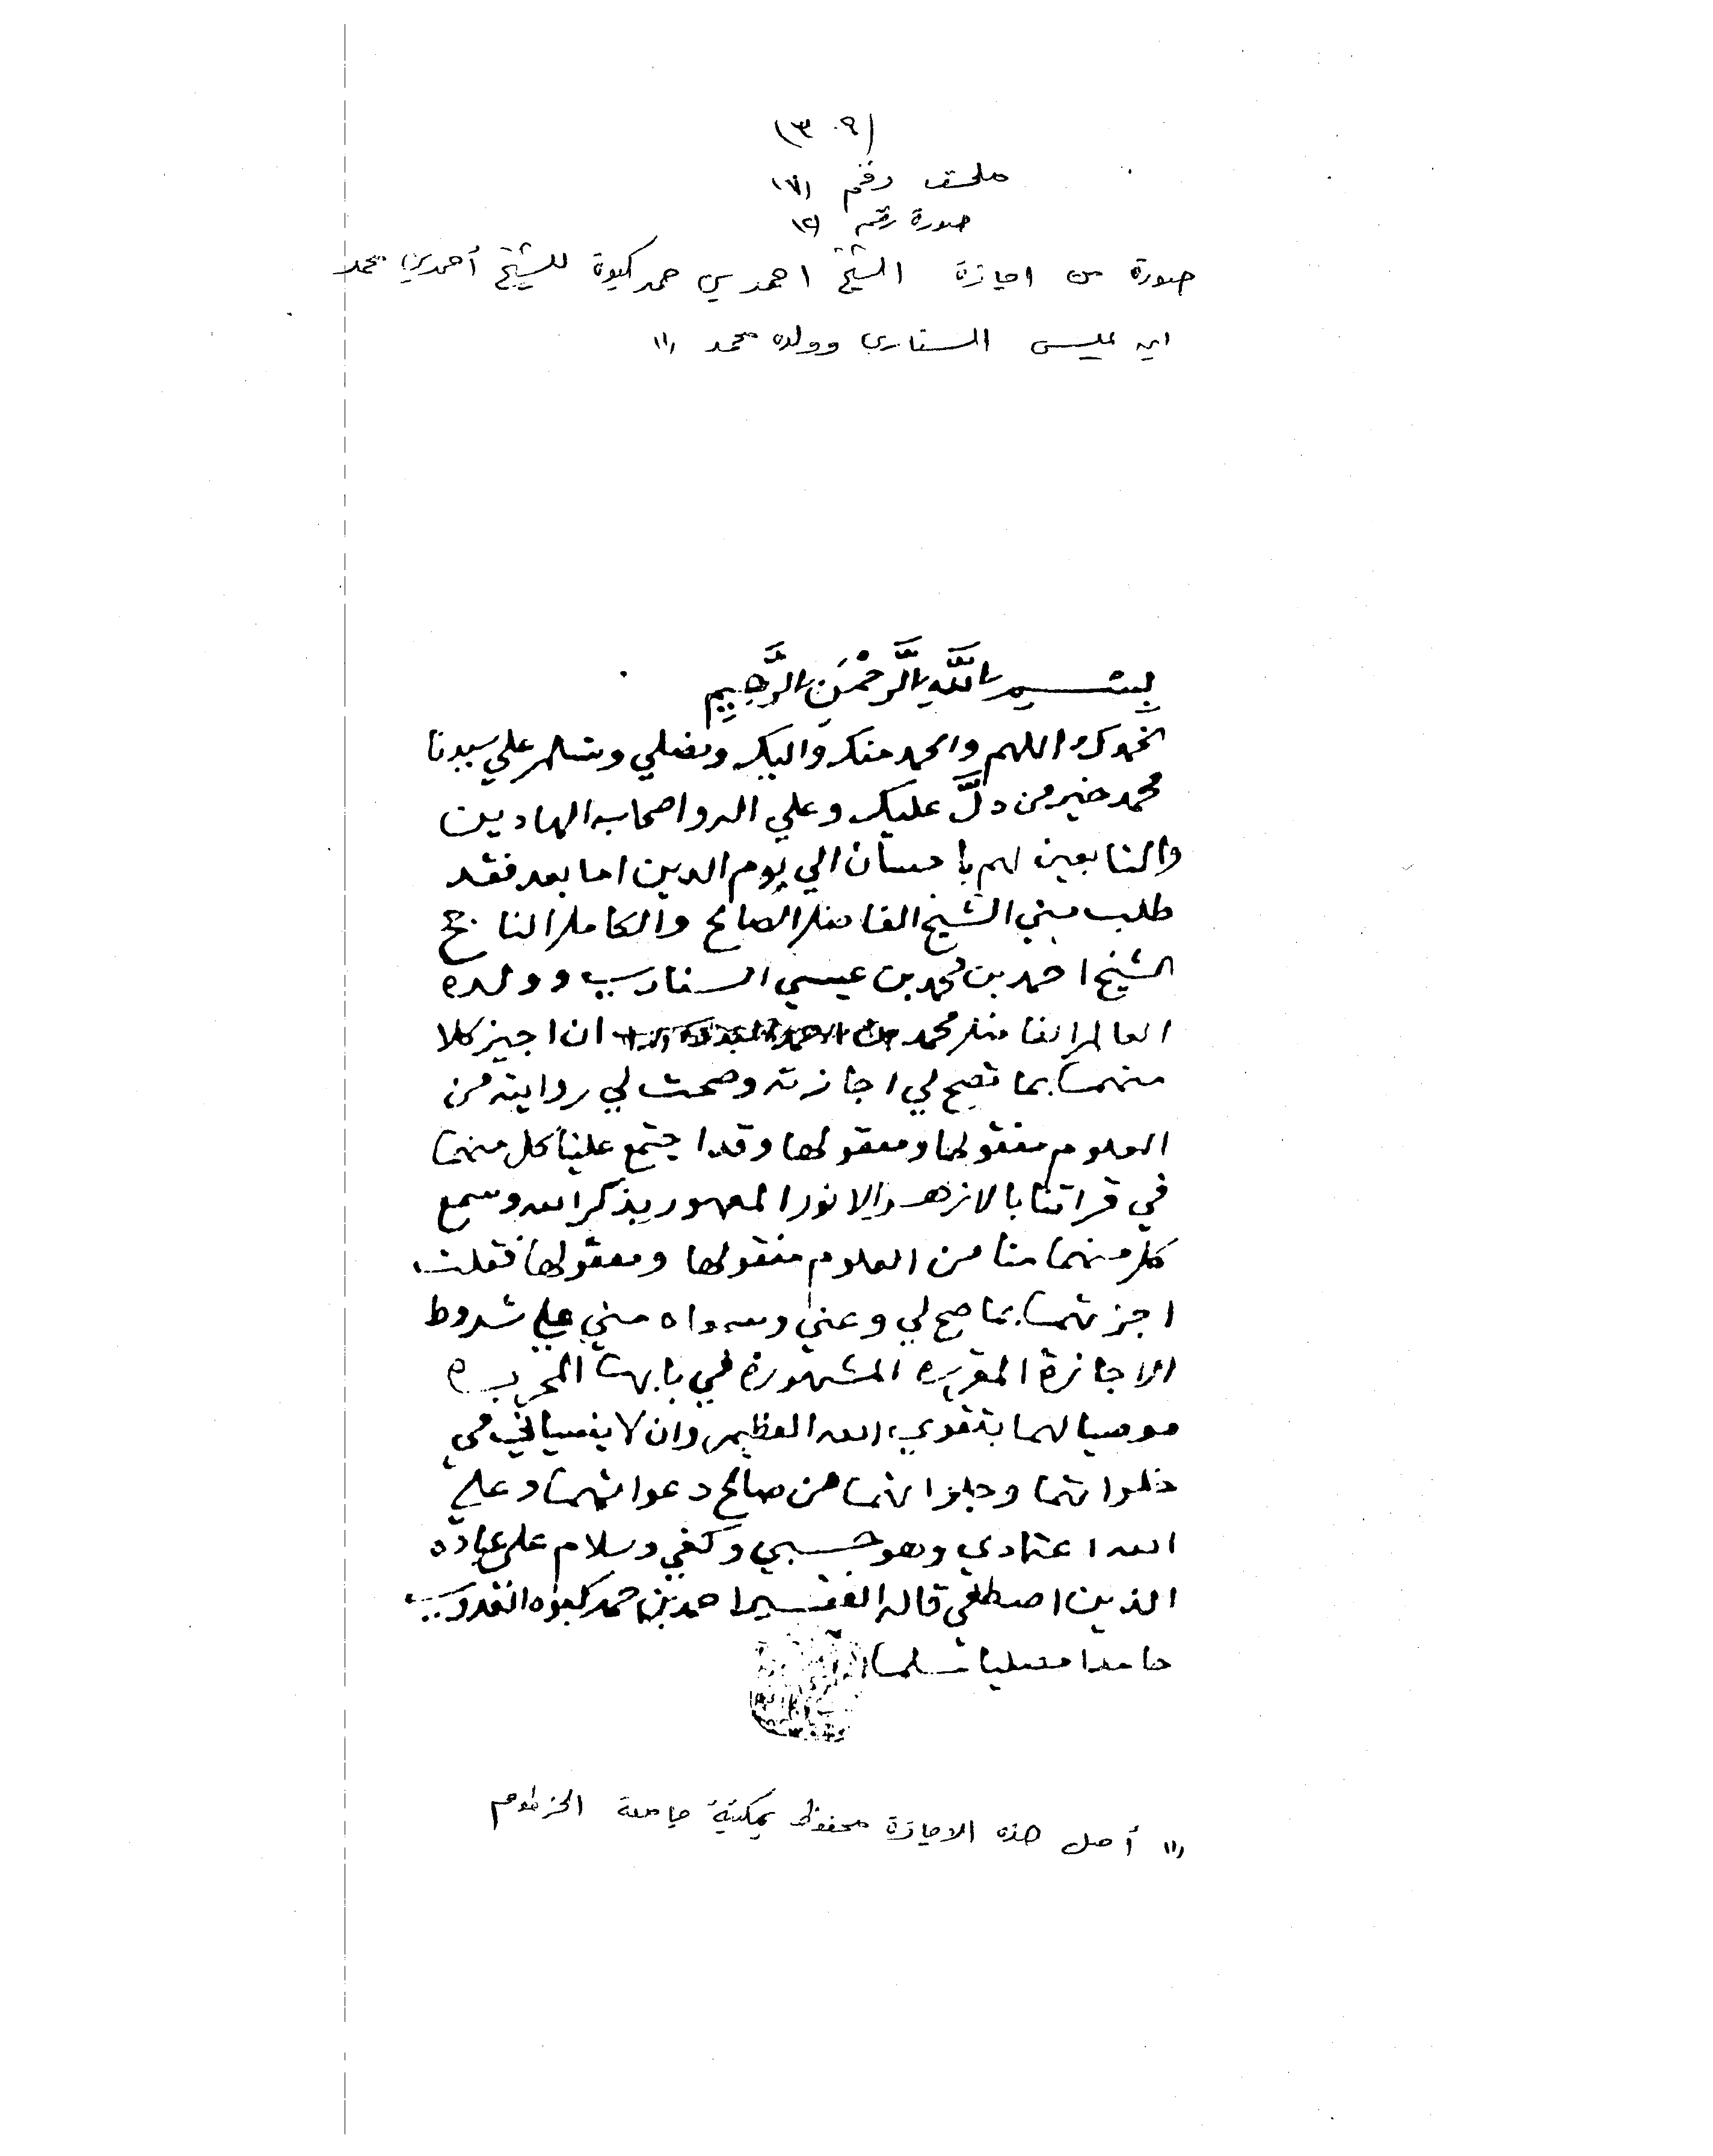 (٣٠٩)
ملحق رقم (٧)
صورة رقم (٢)
صورة من اجازة الشيخ احمد بن حمد كبوة للشيخ أحمد بن محمد
ابن عيسى السنارى وولده محمد (١)
بِسْمِ اللَّهِ الرَّحْمَنِ الرَّحِيمِ
نحمدك اللهم والحمد منك واليك ونصلي ونسلم علي سيدنا
محمد خير من دلَّ عليك وعلي اله واصحابه الهادين
والتابعين لهم باحسان الي يوم الدين اما بعد فقد
طلب مني الشيخ الفاضل الصالح والكامل الناجح
الشيخ احمد بن محمد بن عيسي السناري وولده
العالم الفاضل محمد ان اجيز كلا
منهما بما تصح لي اجازته وصحت لي روايته من
العلوم منقولها ومعقولها وقد اجتمع علينا كل منهما
في قراتنا بالازهر الانور المعمور بذكر الله وسمع
كل منهما منا من العلوم منقولها ومعقولها فقلت
اجزتهما بما صح لي وعني مني علي شروط
الاجازة المقرره المشهورة في بابها المحرره
موصيا لهما بتقوي الله العظيم وان لا ينسياني في
خلواتهما وجلواتهما من صالح دعواتهما وعلي
الله اعتمادي وهو حسبي وكفي وسلام علي عباده
الذين اصطفي قاله الفقير احمد بن حمد كبوه
حامدا مصليا مسلما
(١) أصل هذه الاجازة محفوظ بمكتبة جامعة الخرطوم